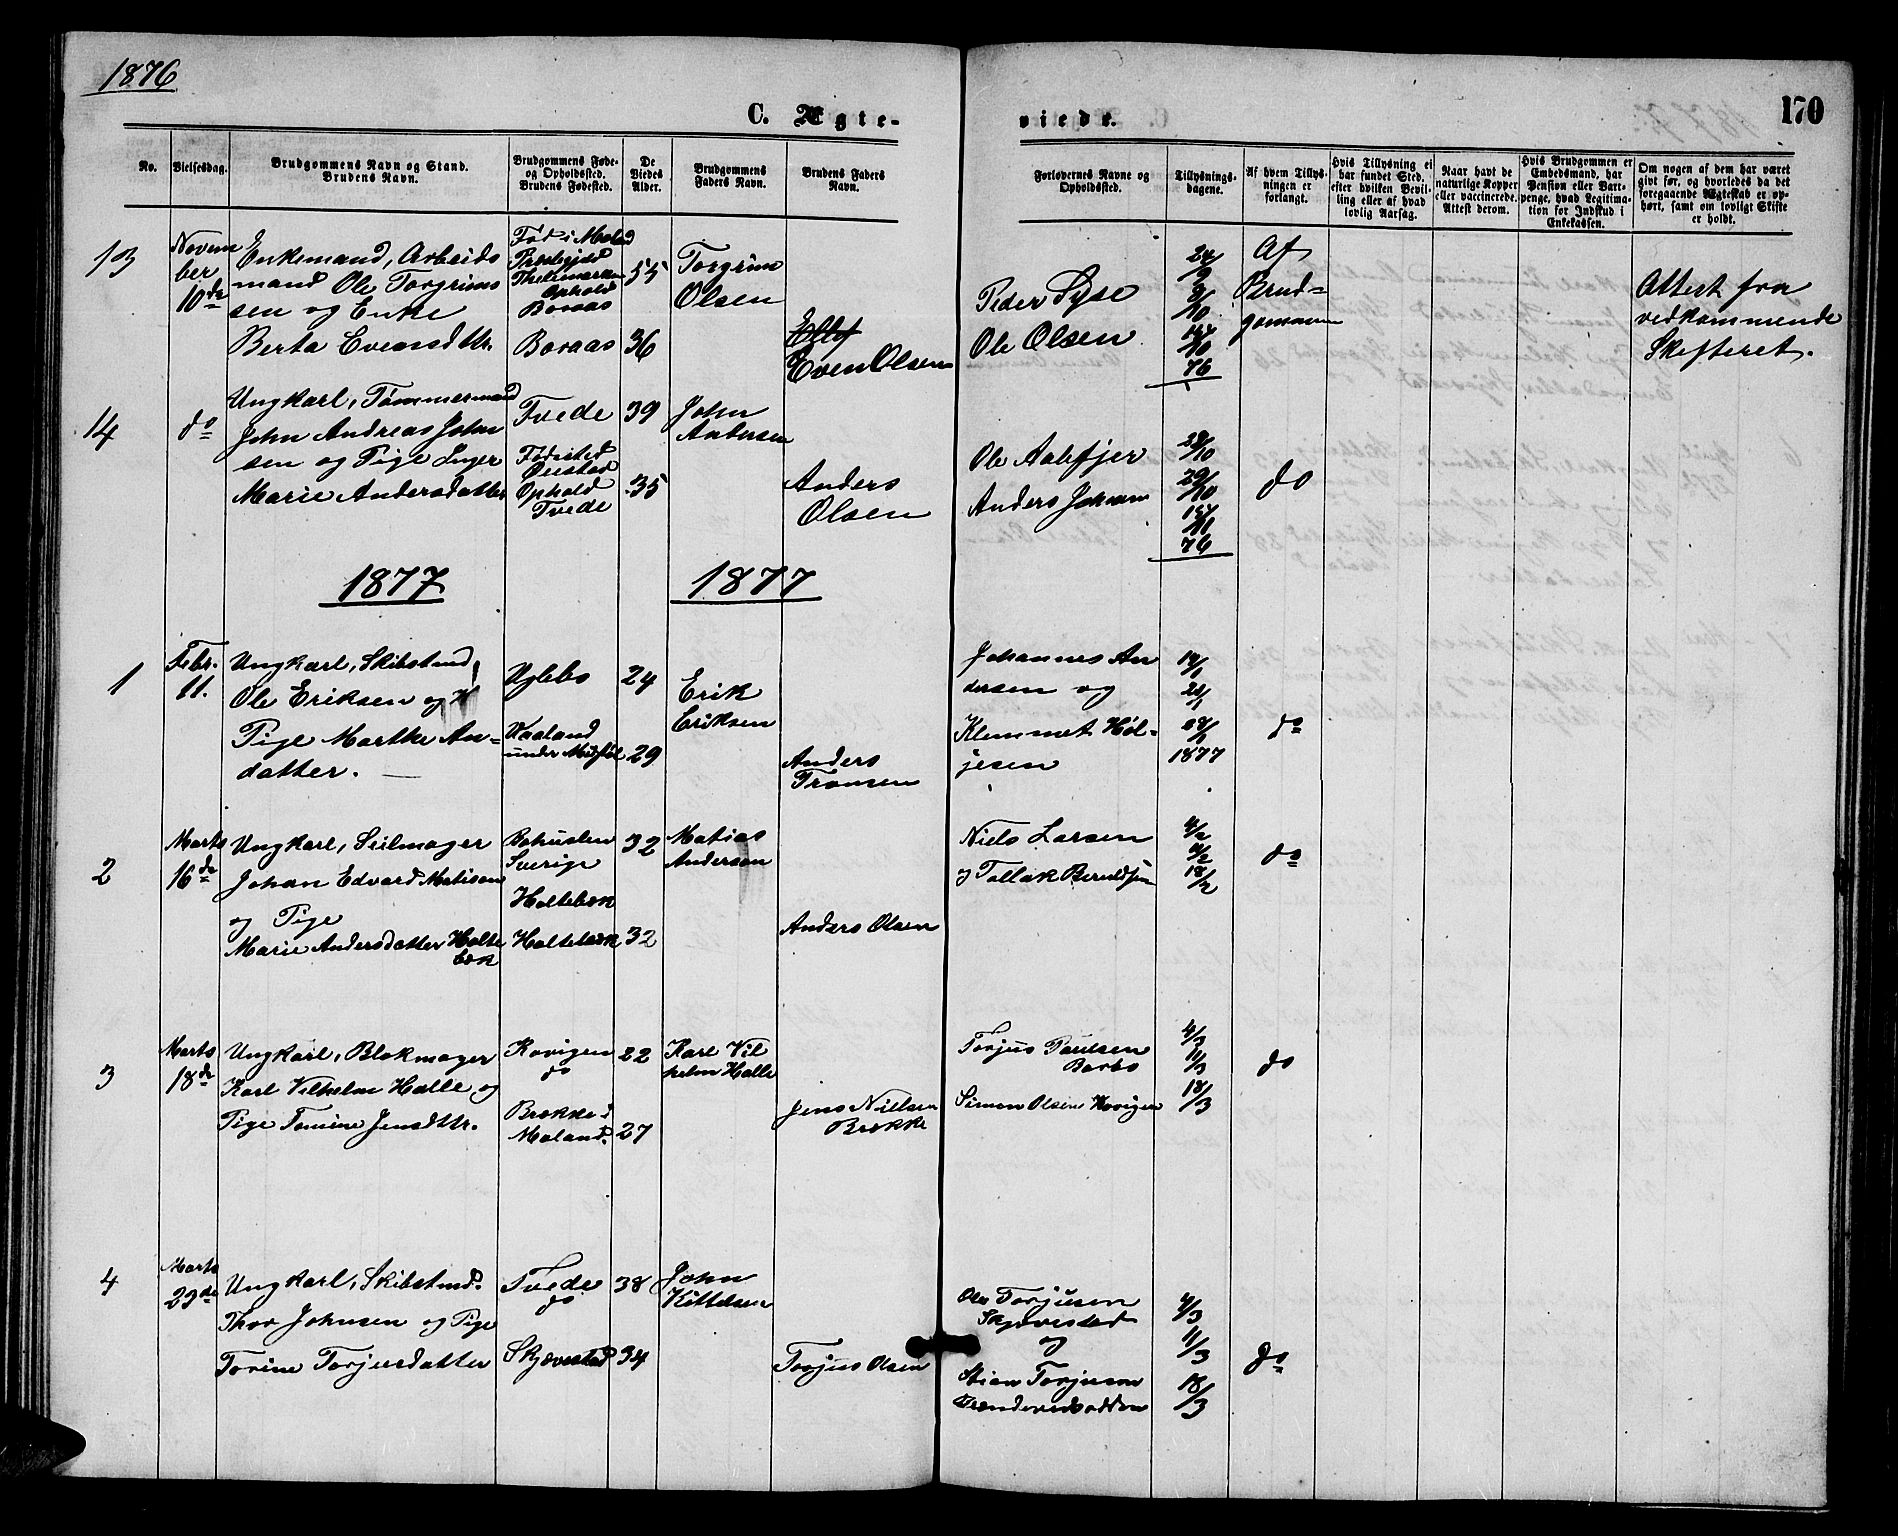 1876
C. Ægte-
viede.
170
No.
Vielsesdag.
Brudgommens Navn og Stand.
Brudens Navn.
Brudgommens Føde-
og Opholdssted.
Brudens Fødested.
De
Viedes
Alder.
Brudgommens
Faders Navn.
Brudens Faders
Navn.
Forlovernes Navne og
Opholdssted.
Tillysnings-
dagene.
Af hvem Tillys-
ningen er
forlangt.
Hvis Tillysning ei
har fundet Sted,
efter hvilken Bevil-
ling eller af hvad
lovlig Aarsag.
Naar havt de
naturlige Kopper
eller vaccinerede.
Attest derom.
Hvis Brudgommen er
Embedsmand, har
Pension eller Vart-
penge, hvad Legitima-
tion for Indskud i
Enkekassen.
Om nogen af dem har været
givt før, og hvorledes da det
foregaaende Ægteskab er op-
hørt, samt om lovligt Skifte
er holdt.
13
Novem
ber
10de
Enkemand, Arbeids
mand Ole Torgrims
sen og Enke
Berta Evensdttr.
Fød i
Præstegjeld
Thelemarken
Ophold
Boraas
Boraas
55
36
Torgrim
Olsen
Even Olsen
Peder Syse
Ole Olsen
24/9
8/10
15/10
76
Af
Brud=
gommen
Attest fra
vedkommende
Skifteret.
14
do
Ungkarl, Tømmermand
John Andreas John
sen og Pige Inger
Marie Andersdatter
Tvede
Fødested
Øiestad
Ophold
Tvede
39
35
John
Andersen
Anders
Olsen
Ole Aalefjer
Anders Johnsen
29/10
76
do
1877
1877
1
Febr.
11.
Ungkarl, Skibstmd
Ole Eriksen og
Pige Marthe An=
datter.
Uglebo
Vaaland
under
24
29
Erik
Eriksen
Anders
Tronsen
Johannes An
dersen og
Klemmet Høl-
jesen
14/1
21/1
28/1
1877
do
2
Marts
16de
Ungkarl, Seilmager
Johan Edvard Matisen
og Pige
Marie Andersdatter Holte
bæk
Bohuslen
Sverige
Holtebæk
Holtebæk
32
32
Matias
Andersen
Anders Olsen
Niels Larsen
og Tollak Berntsen
4/2
11/2
18/2
do
3
Marts
18de
Ungkarl, Blokmager
Karl Vilhelm Halle og
Pige Tomine Jensdttr.
Kovigen
do
Brække i
Moland.
22
27
Karl Vil
helm Halle
Jens Nielsen
Brække
Torjus Paulsen
Barbo
Simon Olsen Kovigen
4/3
11/3
18/3
do
4
Marts
23de
Ungkarl, Skibstmd.
Thor Johnsen og Pige
Torine Torjusdatter
Tvede
do
Skjævestad
38
34
John
Kittelsen
Torjus Olsen
Ole Torjusen
Skjævestad
og
Stian Torjusen
4/3
11/3
18/3
do